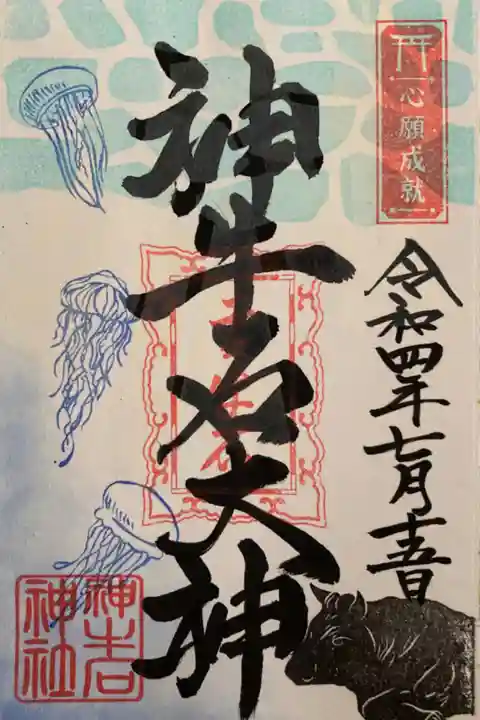 心願成就
令和四年七月十五日
神牛石大神
神吉
神社